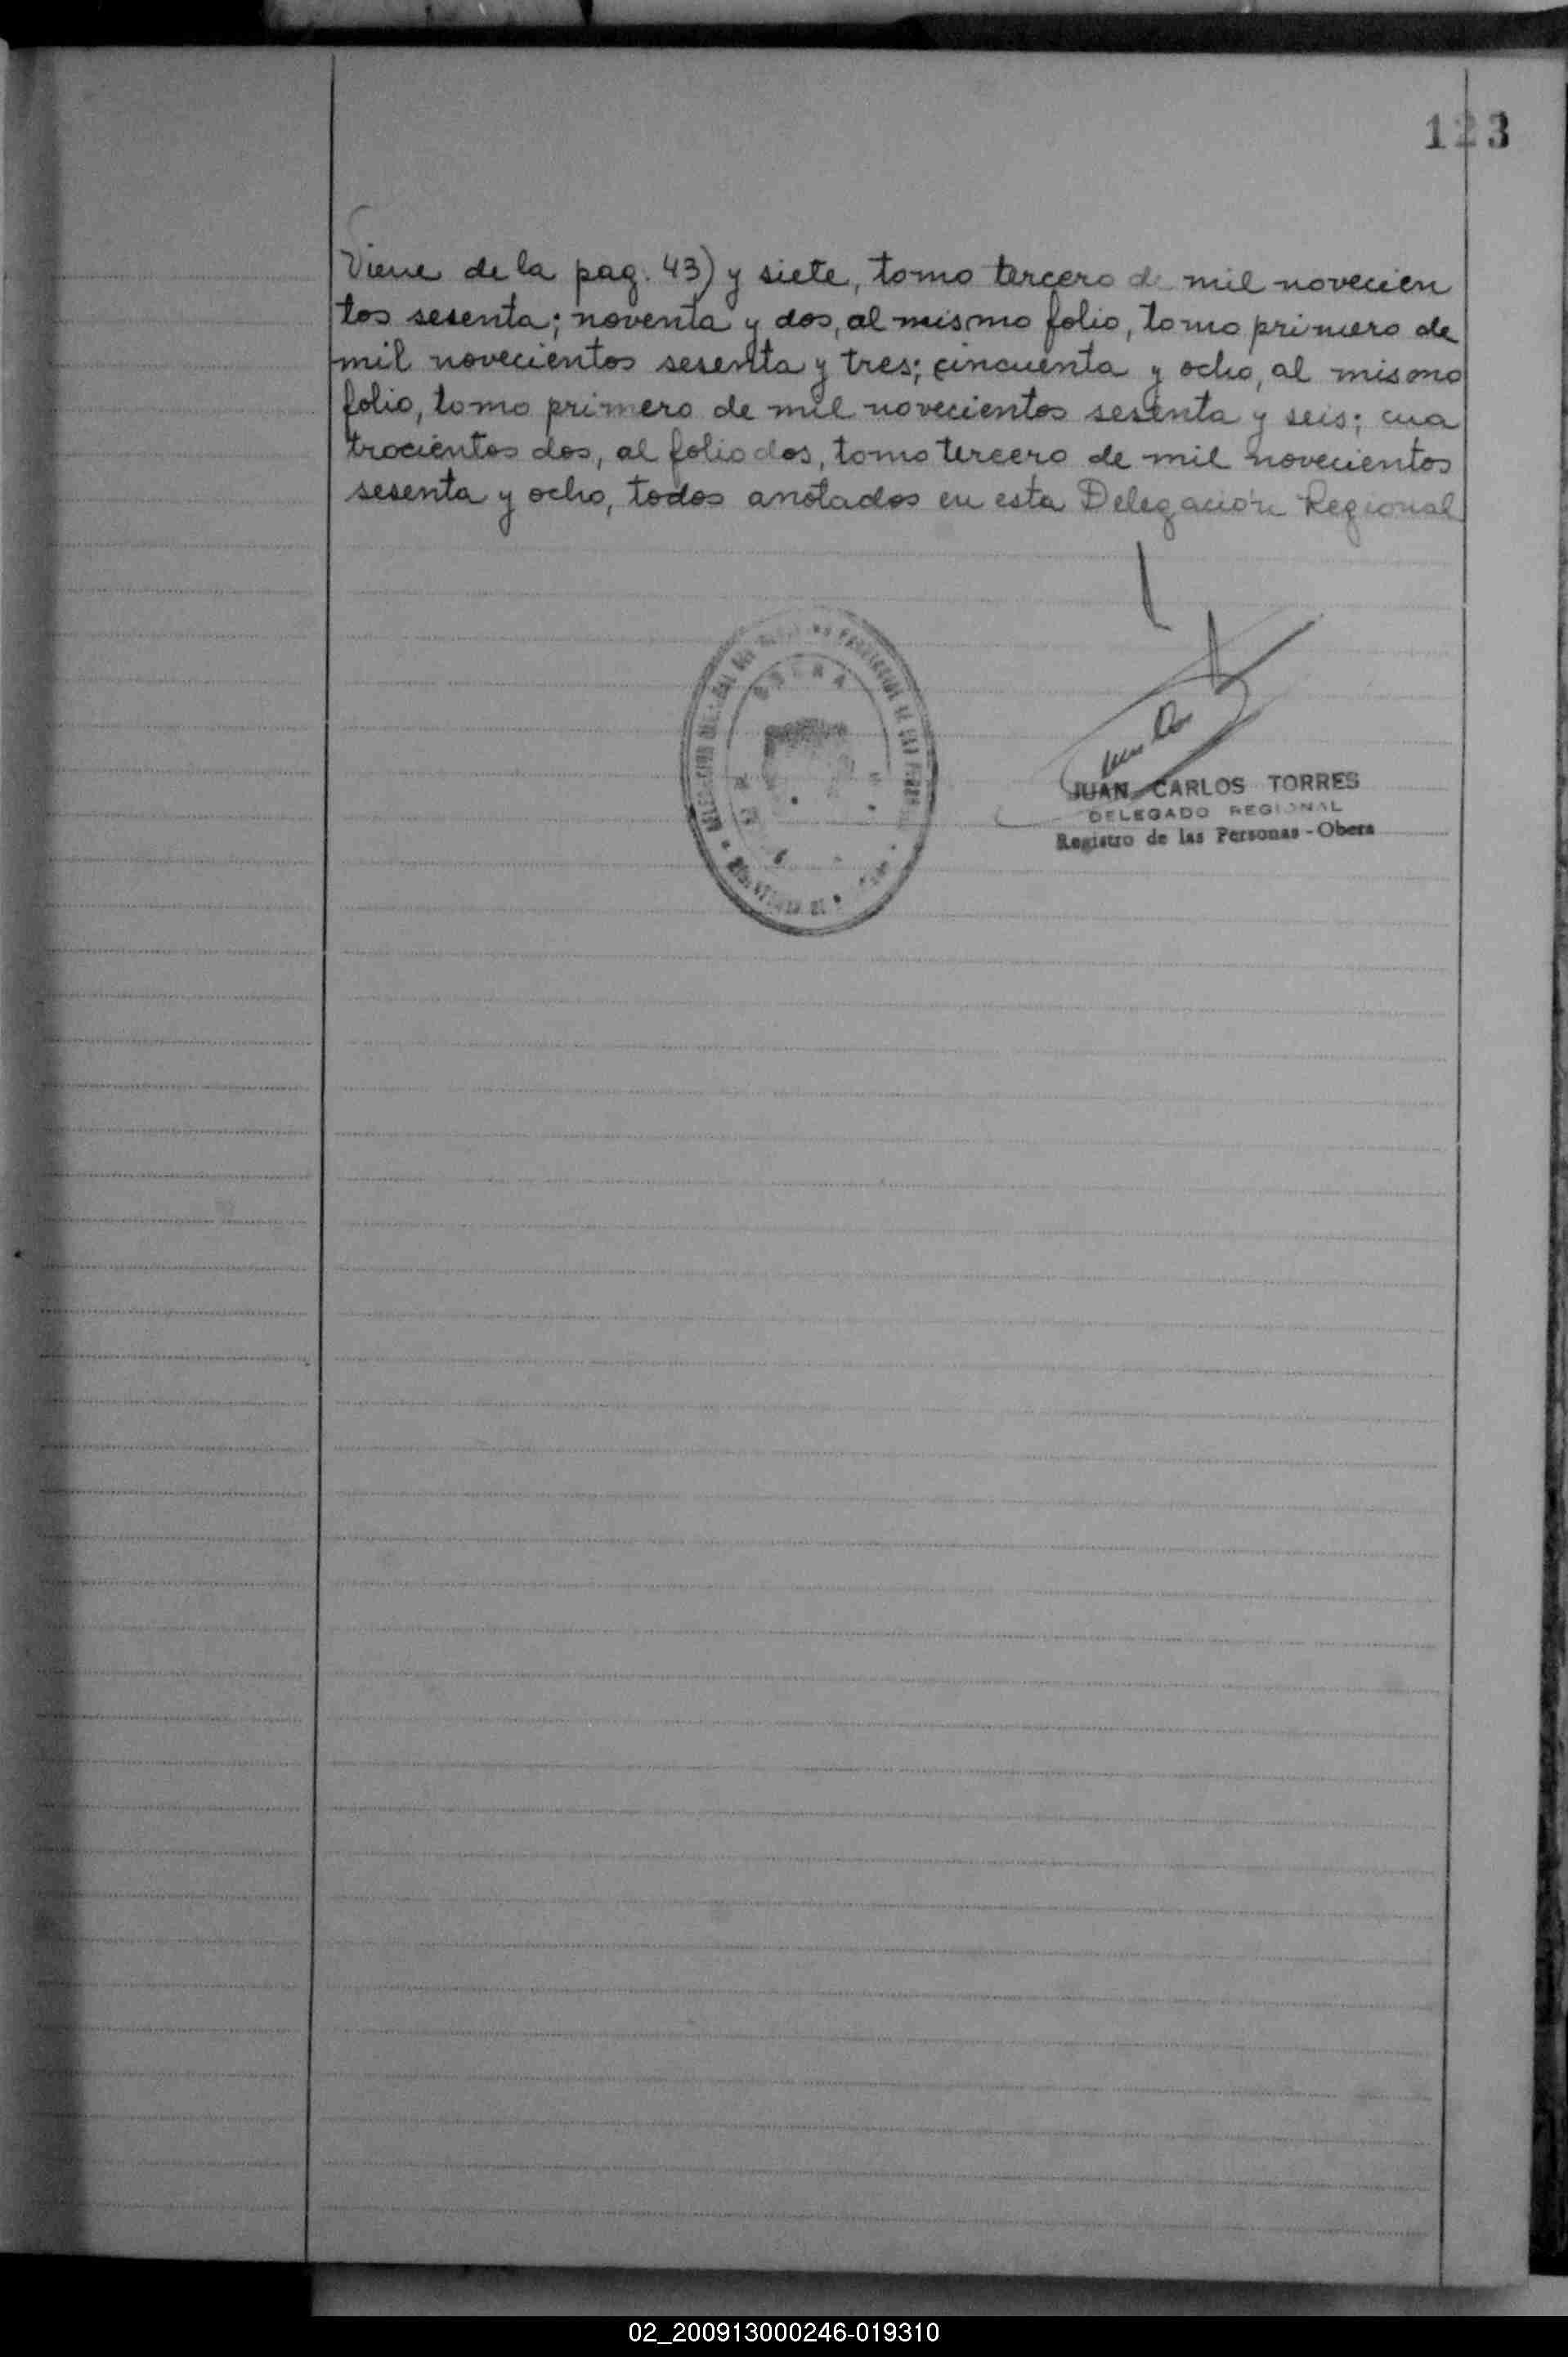 123
Viene de la pag. 43) y siete, tomo tercero de mil novecien
tos sesenta; noventa y dos, al mismo folio, tomo primero de
mil novecientos sesenta y tres; cincuenta y ocho, al mismo
folio, tomo primero de mil novecientos sesenta y seis; cua
trocientos dos, al folio dos, tomo tercero de mil novecientos
sesenta y ocho, todos anotados en esta Delegación Regional
OBERA
JUAN CARLOS TORRES
DELEGADO REGIONAL
Registro de las Personas - Obera
02_200913000246-019310